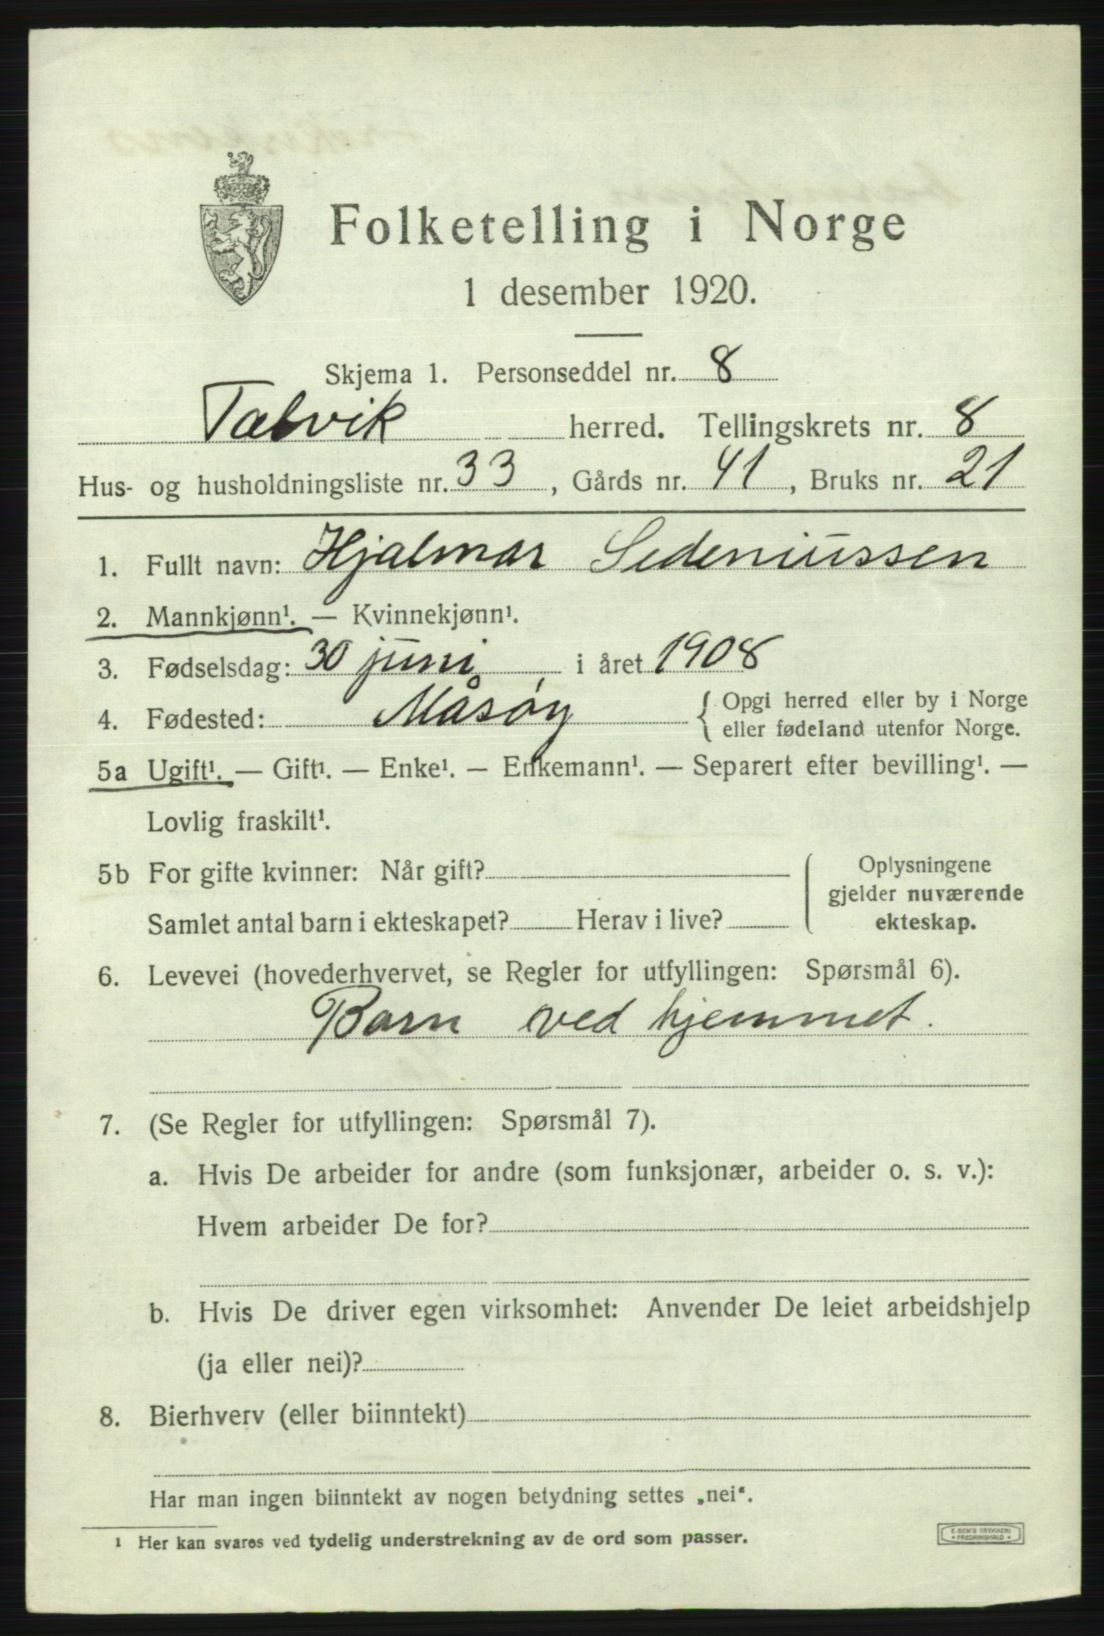 Folketelling i Norge
1 desember 1920.
Skjema 1. Personseddel nr. 8
Talvik herred. Tellingskrets nr. 8
Hus- og husholdningsliste nr. 33, Gårds nr. 41, Bruks nr. 21
1. Fullt navn: Hjalmar Sedeniussen
2. Mannkjønn¹. — Kvinnekjønn¹.
3. Fødselsdag: 30 juni, i året 1908
4. Fødested: Måsøy { Opgi herred eller by i Norge
eller fødeland utenfor Norge.
5a Ugift¹. — Gift¹. — Enke¹. — Enkemann¹. — Separert efter bevilling¹. —
Lovlig fraskilt¹.
5b For gifte kvinner: Når gift?
Samlet antal barn i ekteskapet? Herav i live?
Oplysningene
gjelder nuværende
ekteskap.
6. Levevei (hovederhvervet, se Regler for utfyllingen: Spørsmål 6).
Barn ved hjemmet.
7. (Se Regler for utfyllingen: Spørsmål 7).
a. Hvis De arbeider for andre (som funksjonær, arbeider o. s. v.):
Hvem arbeider De for?
b. Hvis De driver egen virksomhet: Anvender De leiet arbeidshjelp
(ja eller nei)?
8. Bierhverv (eller biinntekt)
Har man ingen biinntekt av nogen betydning settes „nei“.
¹ Her kan svares ved tydelig understrekning av de ord som passer.
E. SEM'S TRYKKERI
FREDRIKSHALD